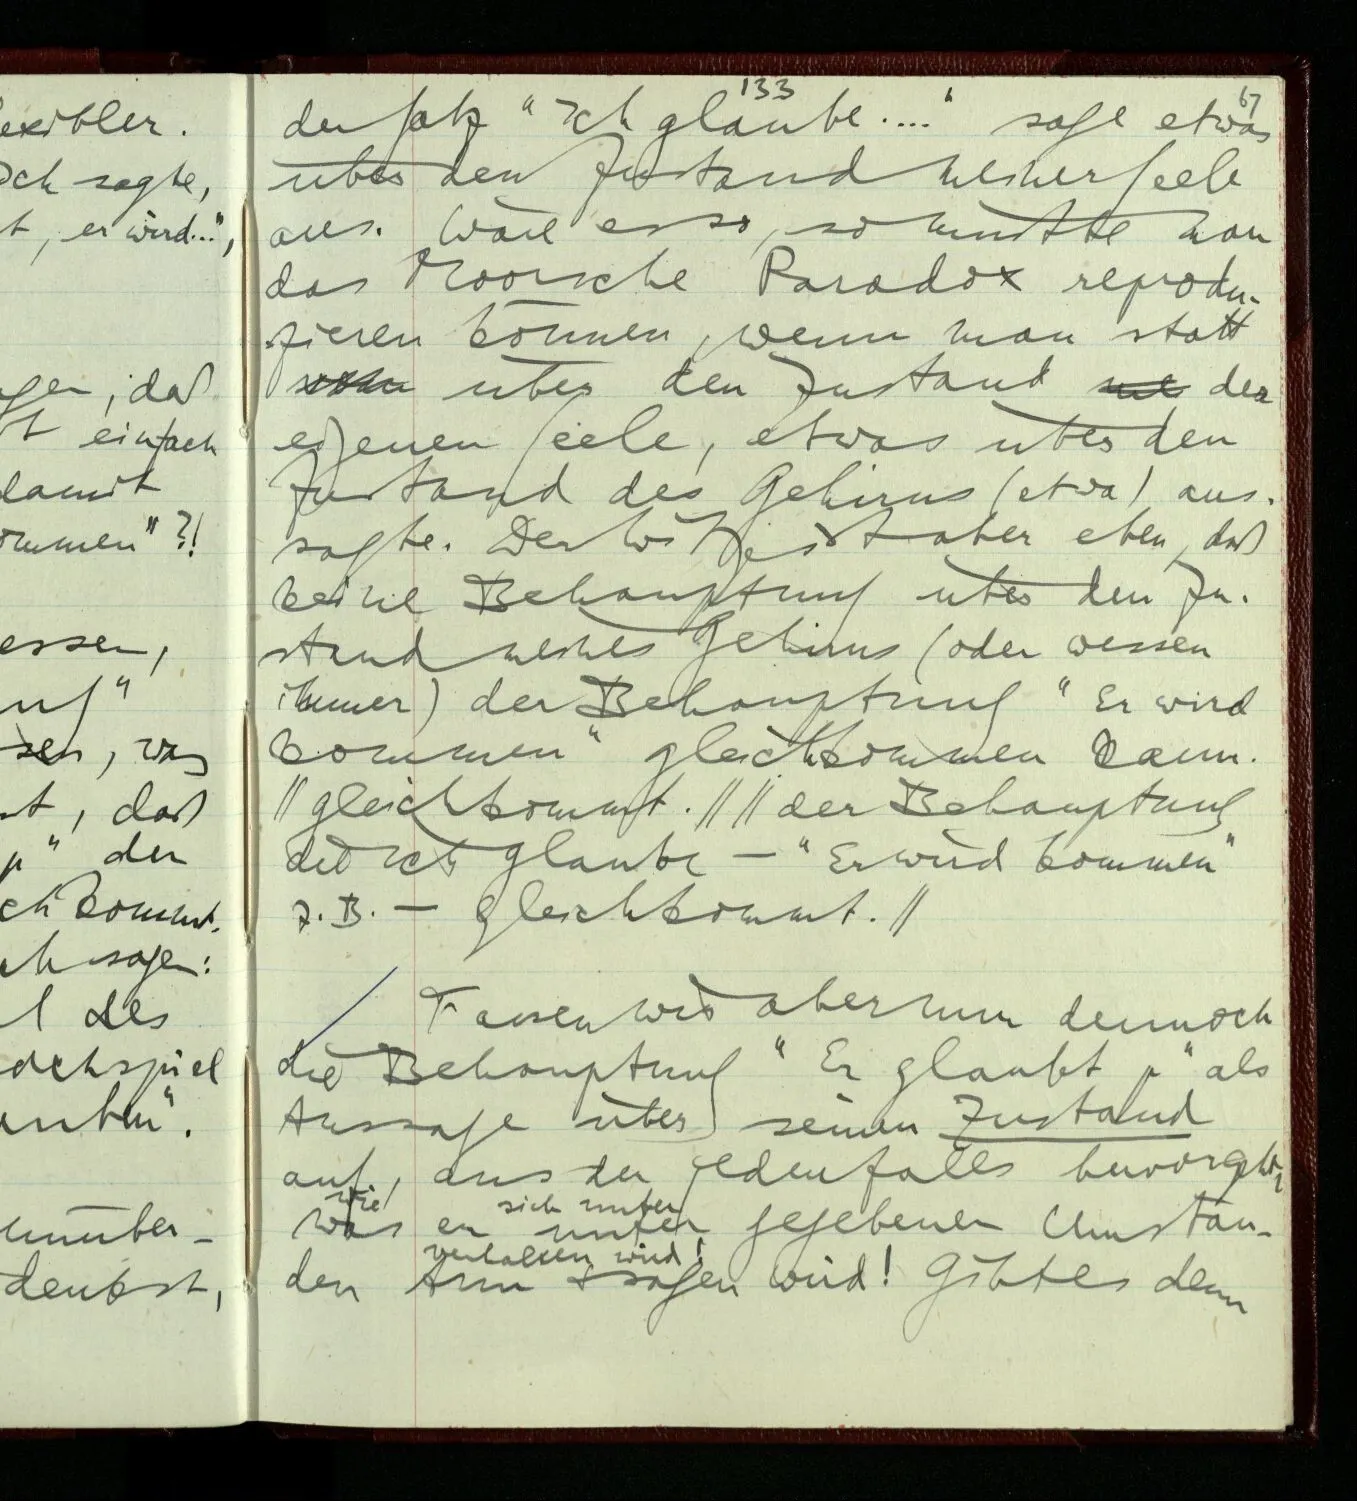 exibler.
Ich sagte,
t, er wird...",
gen, daß
t einfach
damit
ommen"?!
essen,
ung"
sen, was
st, daß
p" der
ich kommt.
ch sagen:
l des
dchspiel
unter".
unüber-
denkst,
133
67
der Satz "Ich glaube...." sage etwas
über den Zustand meiner Seele
aus. Wäre es so, so müßte man
das Moorsche Paradox reprodu-
zieren können, wenn man statt
über den Zustand der
eigenen Seele, etwas über den
Zustand des Gehirns (etwa) aus-
sagte. Der Witz ist aber eben, daß
keine Behauptung über den Zu-
stand meines Gehirns (oder wessen
immer) der Behauptung "Er wird
kommen" gleichkommen kann.
//gleichkommt.// //der Behauptung
die ich glaube — "Er wird kommen"
z.B. — gleichkommt.//
Fassen wir aber nun dennoch
die Behauptung "Er glaubt p" als
Aussage über seinen Zustand
auf, aus der jedenfalls hervorgeht,
wie sich unter
was er unter gegebenen Umstän-
verhalten wird!
den tun & sagen wird! Gibt es denn